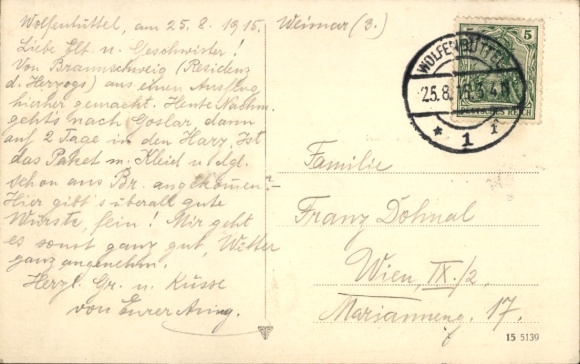 Wolfenbüttel, am 25.8.1915.
Liebe Elt. u. Geschwister!
Von Braunschweig (Residenz
d. Herzogs) aus einen Ausflug
hierher gemacht. Heute Nachm.
gehts nach Goslar, dann
auf 2 Tage in den Harz. Ist
das Paket m. Kleid u. dgl.
schon aus Br. angekommen? –
Hier gibt's überall gute
Würste, fein! Mir geht
es sonst ganz gut, Wetter
ganz angenehm.
Herzl. Gr. u. Küsse
von Eurer
Weimar (3.)
5 5
WOLFENBÜTTEL
25.8.15. 3-4 N
* 1 i
Familie
Franz Dohnal
Wien, IX./2,
Marianneng. 17.
15 5139